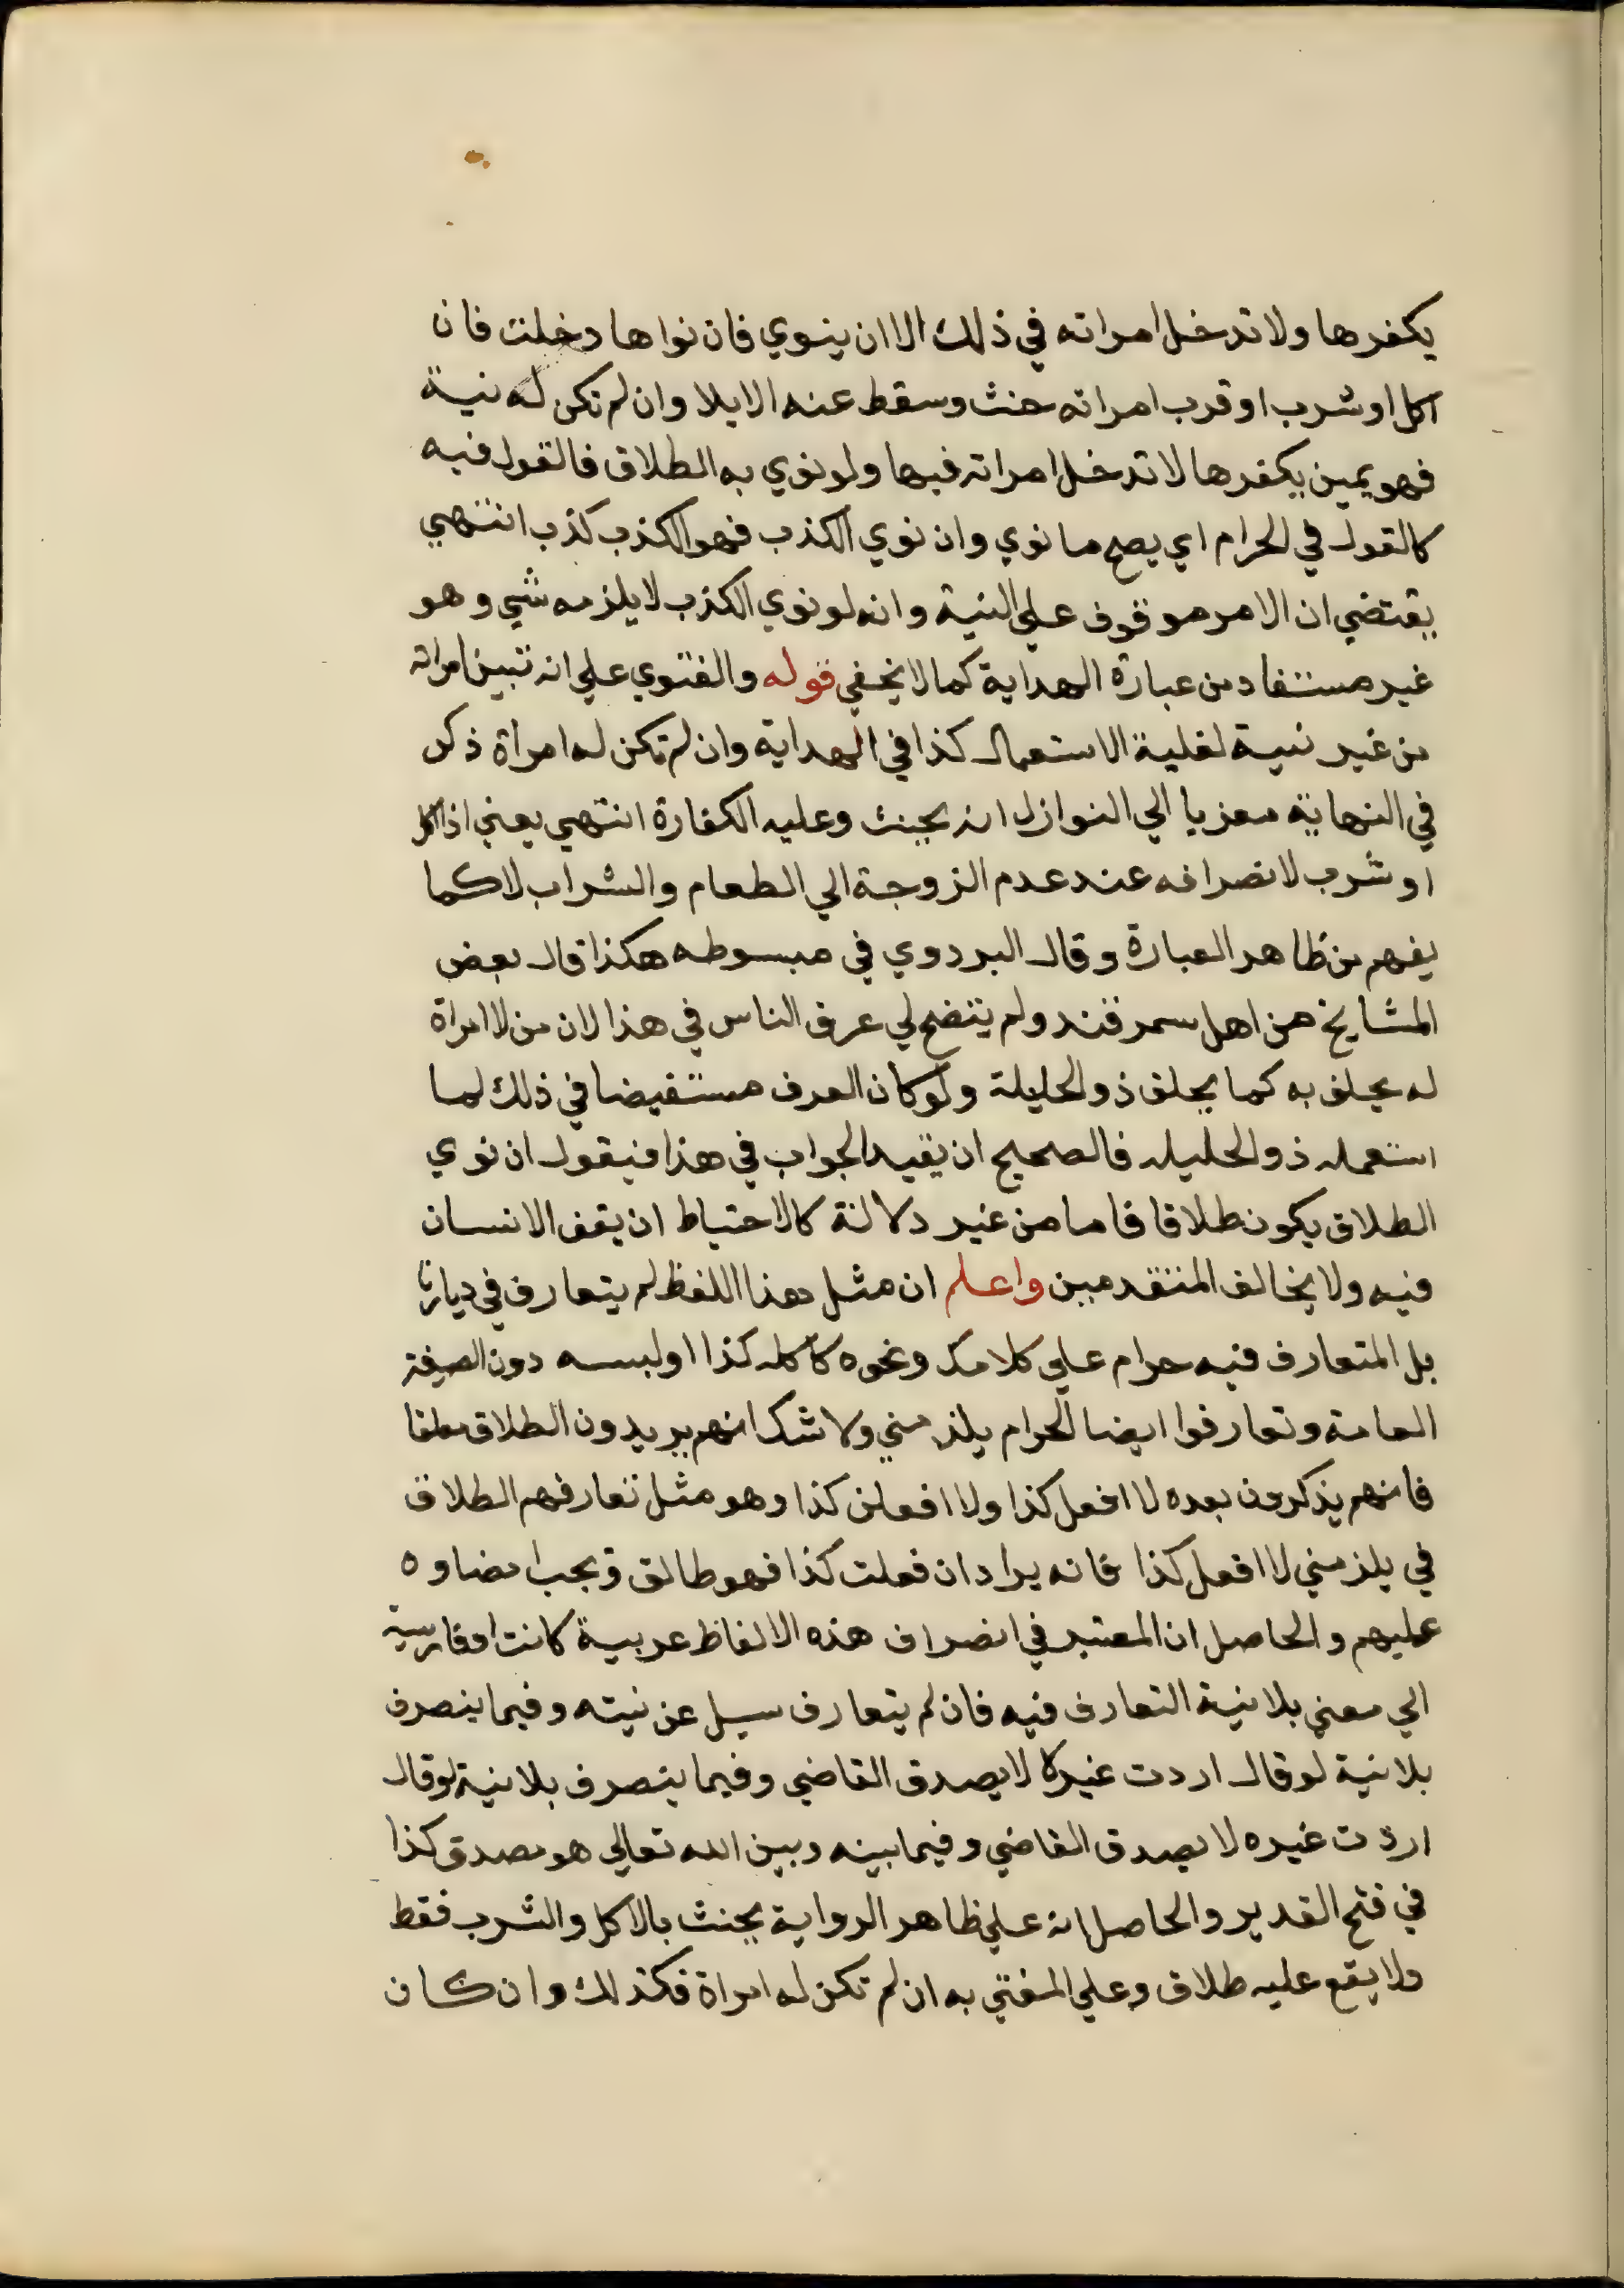 يكفرها ولا تدخل امراته في ذلك الا ان ينوي فان نواها دخلت فان
اكل او شرب او قرب امراته حنث وسقط عنه الايلا وان لم تكن له نية
فهو يمين يكفرها لا تدخل امراته فيها ولو نوي به الطلاق فالقول فيه
كالقول في الحرام اي يصح ما نوي وان نوي الكذب فهو الكذب كذب انتهي
يقتضي ان الامر موقوف علي النية وانه لو نوي الكذب لا يلزمه شي وهو
غير مستفاد من عبارة الهداية كما لا يخفي قوله والفتوي علي انه تبين امراته
من غير نية لغلبة الاستعمال كذا في الهداية وان لم تكن له امراة ذكر
في النهاية معزيا الي النوازل انه يحنث وعليه الكفارة انتهي يعني اذا اكل
او شرب لانصرافه عند عدم الزوجة الي الطعام والشراب لا كما
يفهم من ظاهر العبارة وقال البردوي في مبسوطه هكذا قال بعض
المشايخ من اهل سمرقند ولم يتضح لي عرف الناس في هذا لان من لا امراة
له يحلف به كما يحلف ذو الحليلة ولو كان العرف مستفيضا في ذلك لما
استعمله ذو الحليله فالصحيح ان يقيد الجواب في هذا فيقول ان نوي
الطلاق يكون طلاقا فاما من غير دلالة كالاحتياط ان يقف الانسان
فيه ولا يخالف المتقدمين واعلم ان مثل هذا اللفظ لم يتعارف في ديارنا
بل المتعارف فيه حرام علي كلامك ونحوه كاكله كذا او لبسه دون الصيغة
العامة وتعارفوا ايضا الحرام يلزمني ولا شك انهم يريدون الطلاق معلقا
فانهم يذكرون بعده لا افعل كذا ولا افعلن كذا وهو مثل تعارفهم الطلاق
في يلزمني لا افعل كذا فانه يراد ان فعلت كذا فهو طالق ويجب امضاوه
عليهم والحاصل ان المعتبر في انصراف هذه الالفاظ عربية كانت او فارسية
الي معني بلا نية التعارف فيه فان لم يتعارف سيل عن نيته وفيما ينصرف
بلا نية لو قال اردت غيركا لا يصدق القاضي وفيما ينصرف بلا نية لو قال
اردت غيره لا يصدق القاضي وفيما بينه وبين الله تعالي هو مصدق كذا
في فتح القدير والحاصل انه علي ظاهر الرواية يحنث بالاكل والشرب فقط
ولا يقع عليه طلاق وعلي المفتي به ان لم تكن له امراة فكذلك وان كان